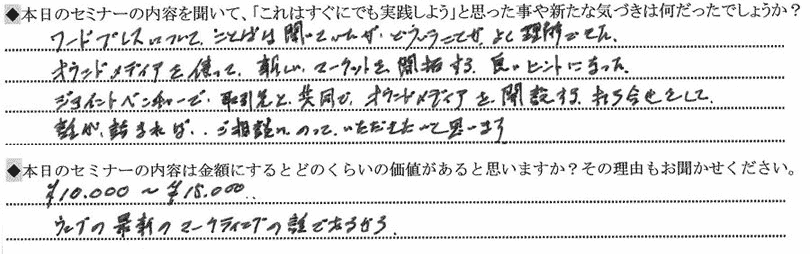 ◆本日のセミナーの内容を聞いて、「これはすぐにでも実践しよう」と思った事や新たな気づきは何だったでしょうか？
ワードプレスについて、ことばは聞いていたが、どういうことか、よく理解できた。
オウンドメディアを使って、新しい、マーケットを開拓する、良いヒントになった。
ジョイントベンチャーで、取引先と、共同で、オウンドメディアを開設する、打ち合せをして、
話が、詰まれば、ご相談に、のって、いただきたいと思います
◆本日のセミナーの内容は金額にするとどのくらいの価値があると思いますか？その理由もお聞かせください。
¥10.000 ～ ¥15.000..
ウェブの最新のマーケティングの話であるから.